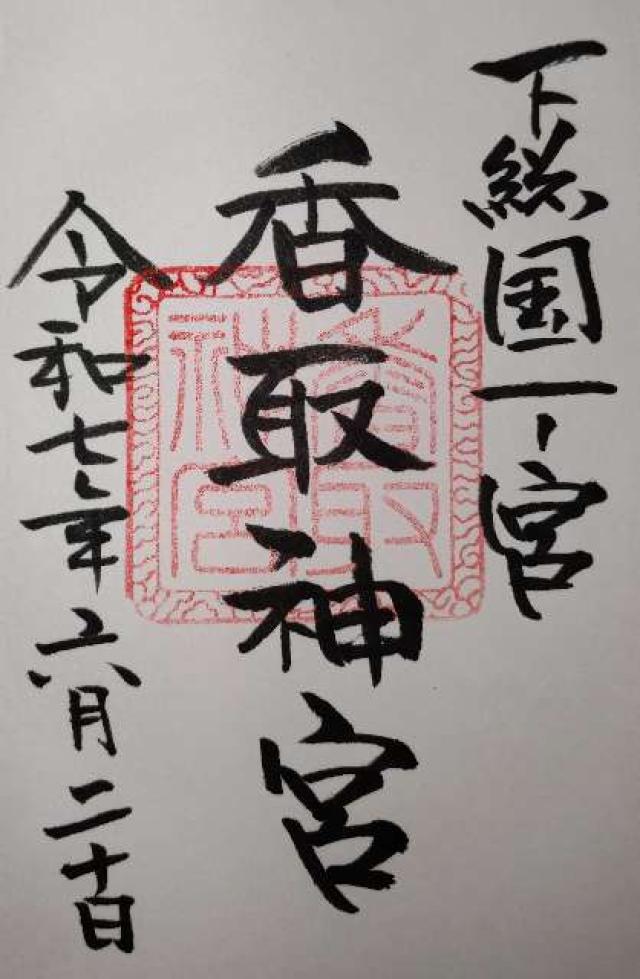 下総国一ノ宮
香取神宮
令和七年六月二十日
香取
神宮